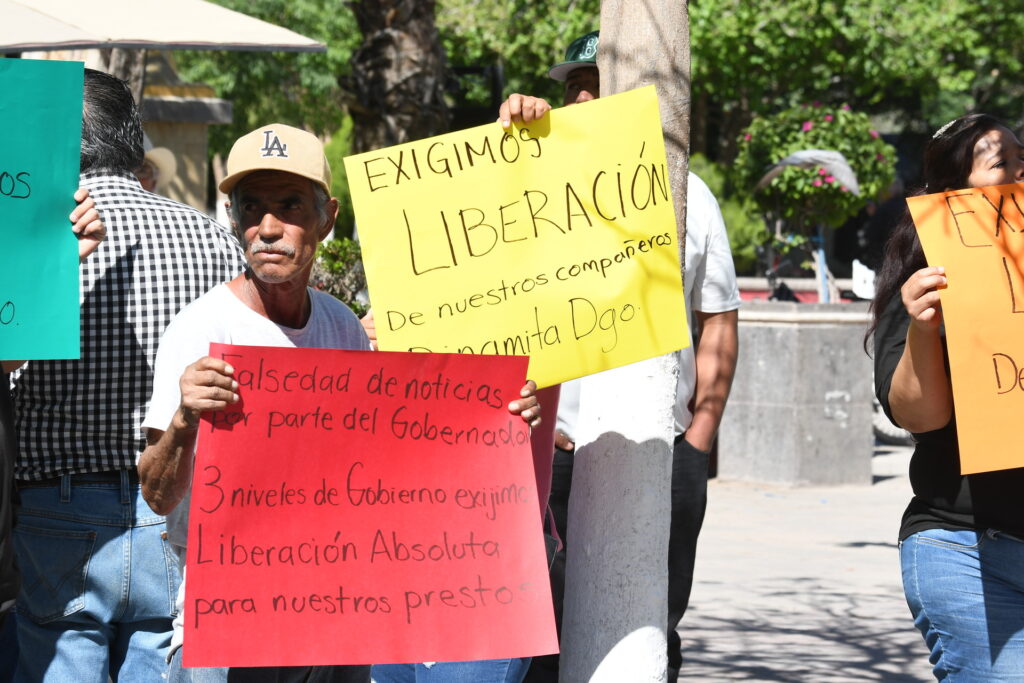 LA
B
EXIGIMOS
LIBERACIÓN
De nuestros compañeros
Dinamita Dgo.
Falsedad de noticias
por parte del Gobernador
3 niveles de Gobierno exijimo
Liberación Absoluta
para nuestros prestos
os
o.
EX
L
De